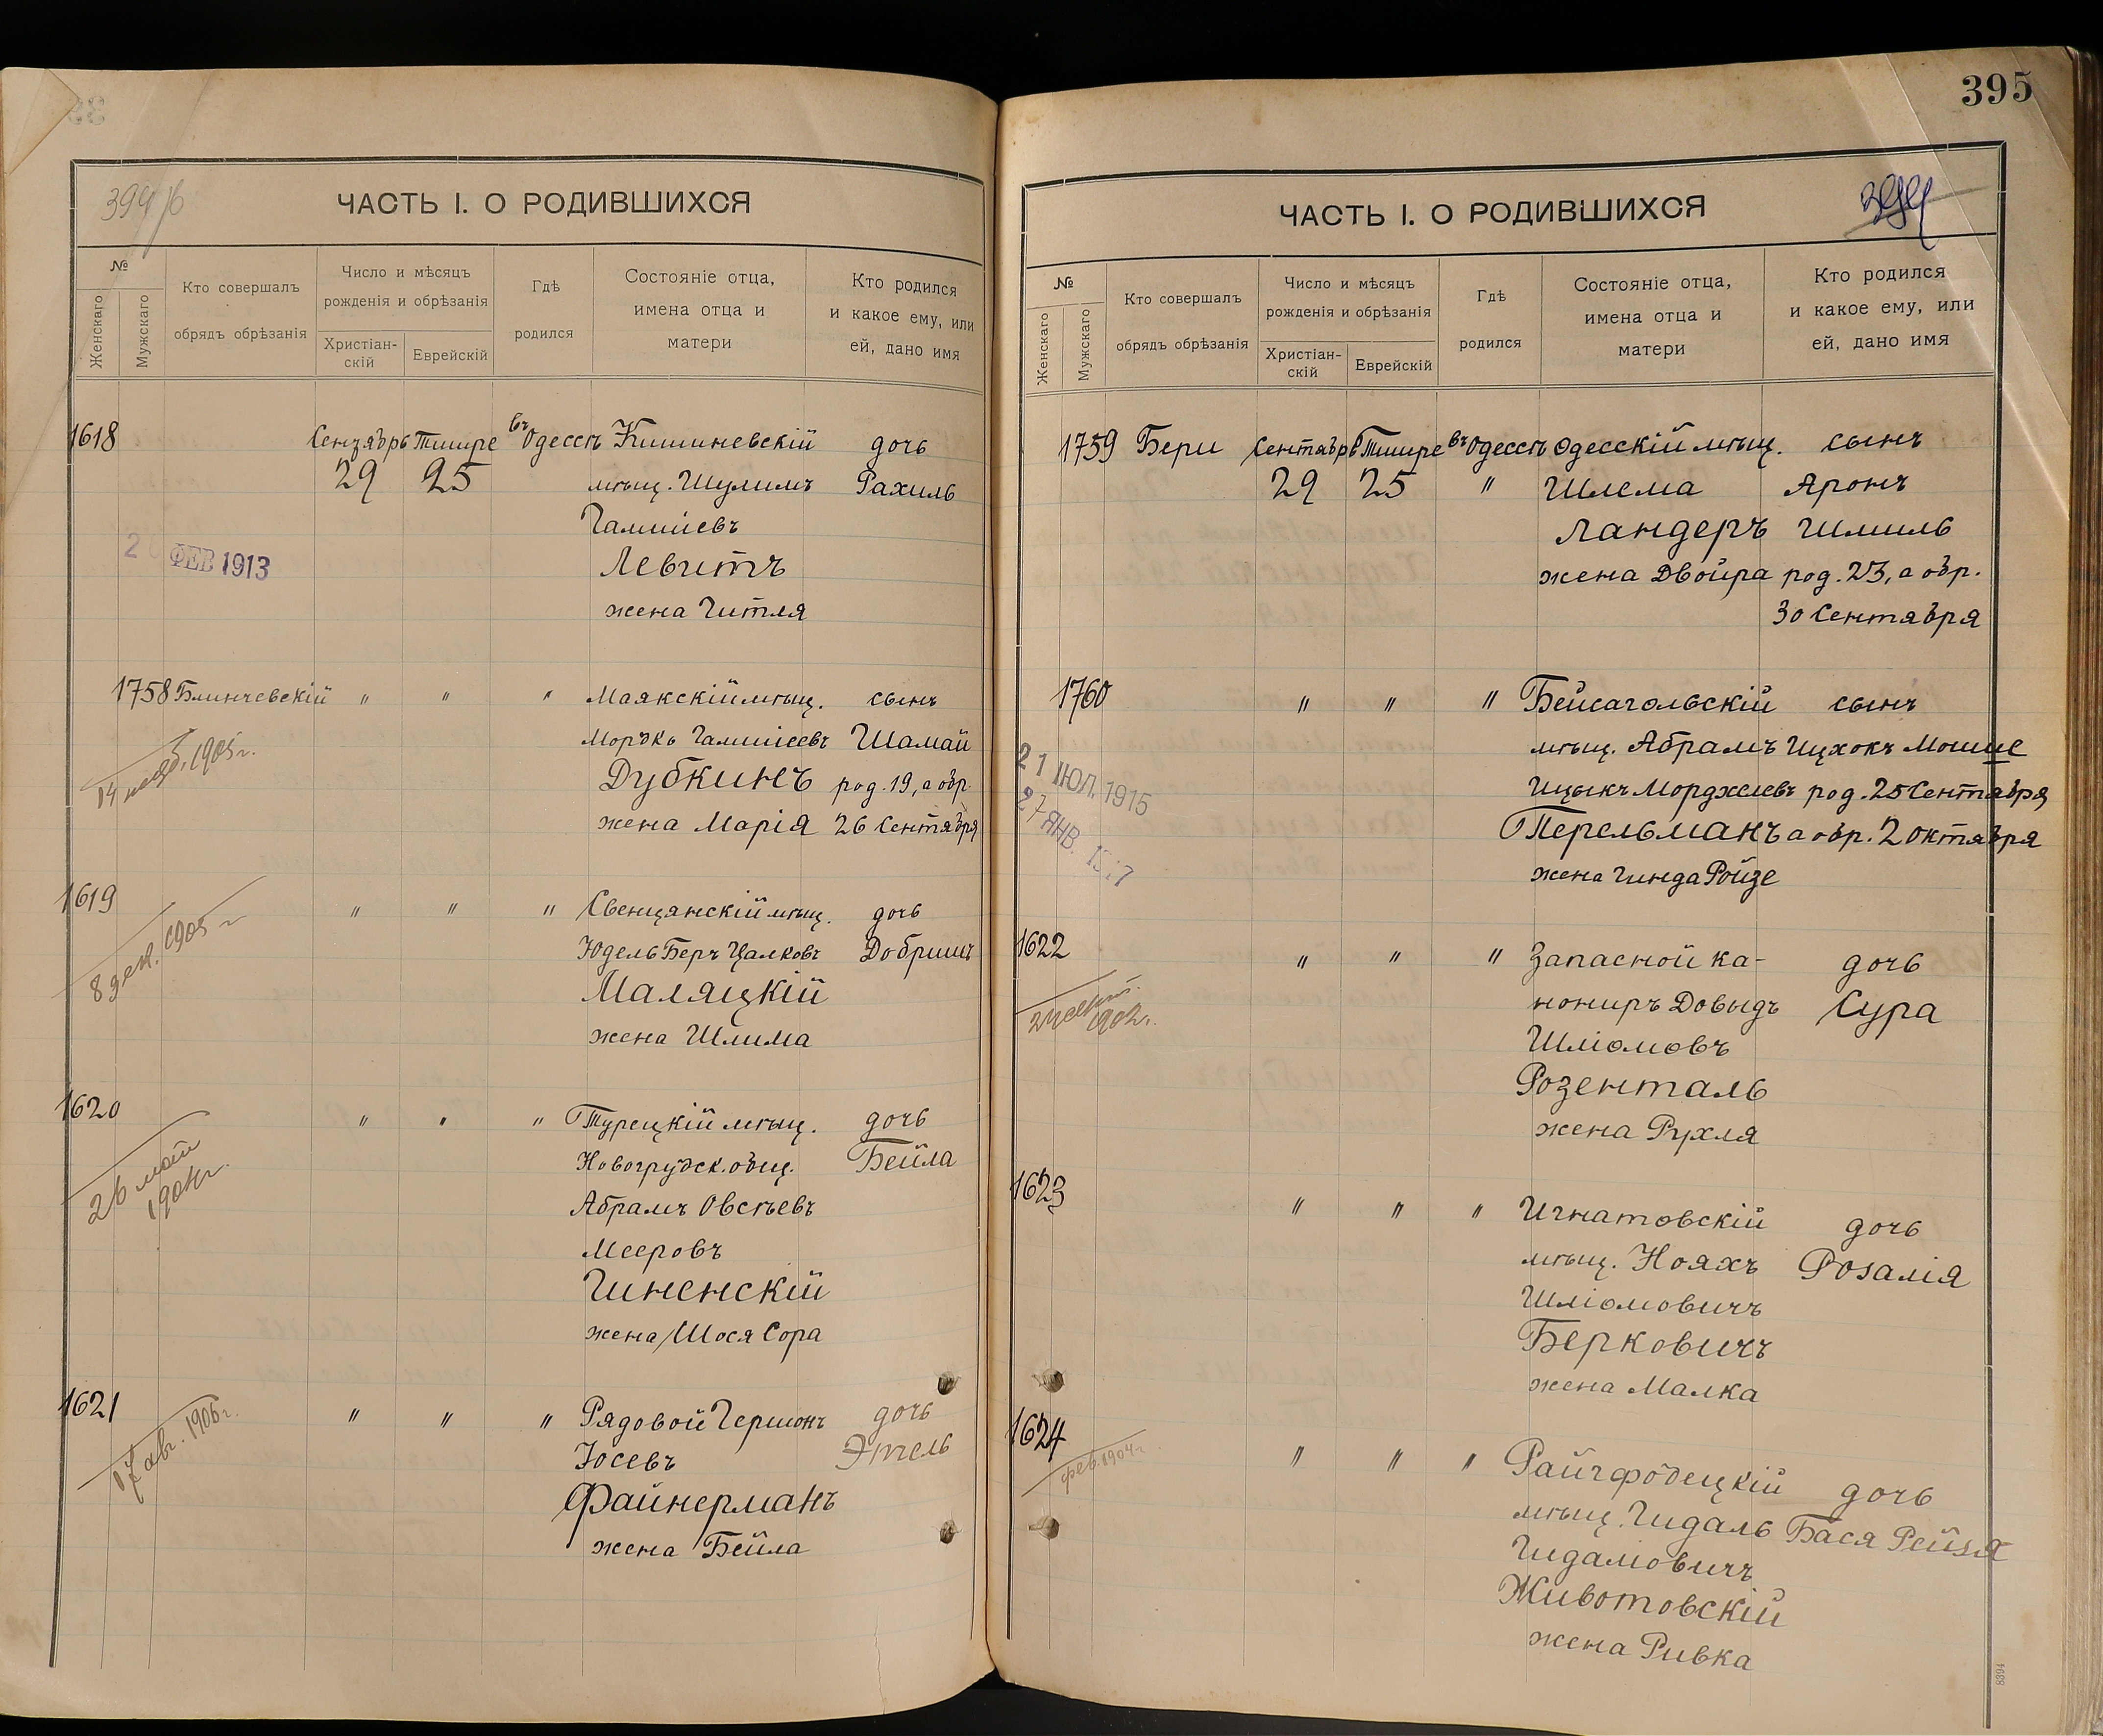 394/б
ЧАСТЬ I. О РОДИВШИХСЯ
№
Женскаго
Мужскаго
Кто совершалъ
обрядъ обрѣзанія
Число и мѣсяцъ
рожденія и обрѣзанія
Христіан-
скій
Еврейскій
Гдѣ
родился
Состояніе отца,
имена отца и
матери
Кто родился
и какое ему, или
ей, дано имя
1618 Сентябрь Тишре въ Одессѣ Кишиневскій дочь
29 25 мѣщ. Шулимъ Рахиль
Гамшіевъ
Левитъ
жена Гитля
ФЕВ 1913
1758 Блинчевскій " " " Маякскій мѣщ. сынъ
Мордко Гамшіевъ Шамай
Дубкинъ род. 19, а обр.
жена Марія 26 Сентября
1905 г.
1619 " " " Свенцянскій мѣщ. дочь
Юдель Беръ Цалковъ Добришъ
Маляцкій
жена Шлима
8 дек. 1905 г
1620 " " " Турецкій мѣщ. дочь
Новогрудск. общ. Бейла
Абрамъ Овсѣевъ
Мееровъ
Гиненскій
жена Шося Сора
26 мая
1904 г.
1621 " " " Рядовой Гершонъ дочь
Іосевъ Этель
Файнерманъ
жена Бейла
17 авг. 1906 г.
395
394
ЧАСТЬ I. О РОДИВШИХСЯ
№
Женскаго
Мужскаго
Кто совершалъ
обрядъ обрѣзанія
Число и мѣсяцъ
рожденія и обрѣзанія
Христіан-
скій
Еврейскій
Гдѣ
родился
Состояніе отца,
имена отца и
матери
Кто родился
и какое ему, или
ей, дано имя
1759 Бери Сентябрь Тишре въ Одессѣ Одесскій мѣщ. сынъ
29 25 " Шлема Аронъ
Ландеръ Шмиль
жена Двойра род. 23, а обр.
30 Сентября
1760 " " " Бейсагольскій сынъ
мѣщ. Абрамъ Ицхокъ Мошше
Ицыкъ Морджелевъ род. 25 Сентября
Перельманъ а обр. 2 октября
жена Гинда Ройзе
21 ІЮЛ. 1915
27 ЯНВ.
1622 " " " Запасной ка- дочь
нониръ Довыдъ Сура
Шліомовъ
Розенталь
жена Рухля
1902 г.
1623 " " " Игнатовскій дочь
мѣщ. Нояхъ Розалія
Шліомовичъ
Берковичъ
жена Малка
1624 " " " Райгродецкій дочь
мѣщ. Гидаль Бася Рейзя
Гидаліовичъ
Животовскій
жена Ривка
фев. 1904 г.
8394